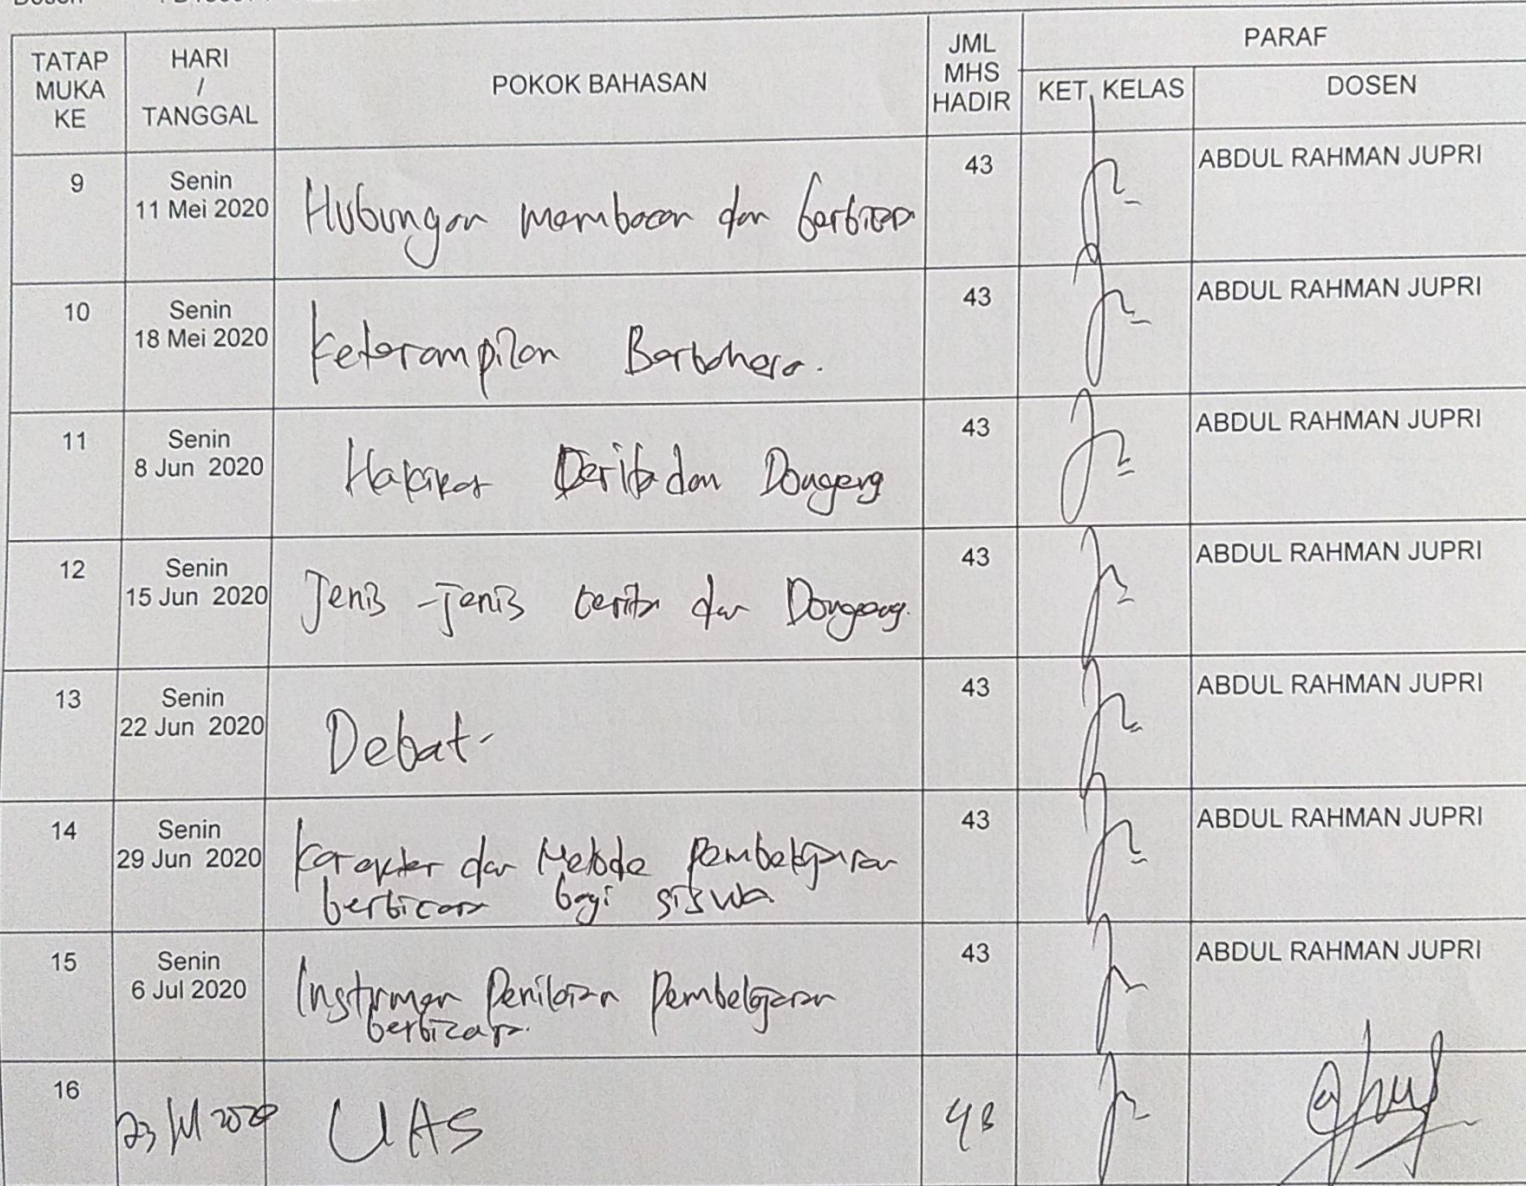 TATAP MUKA KE
HARI / TANGGAL
POKOK BAHASAN
JML MHS HADIR
PARAF
KET, KELAS
DOSEN
9
Senin
11 Mei 2020
Hubungan membaca dan berbicara
43
ABDUL RAHMAN JUPRI
10
Senin
18 Mei 2020
Keterampilan Berbahasa.
43
ABDUL RAHMAN JUPRI
11
Senin
8 Jun 2020
Hakikat Cerita dan Dongeng
43
ABDUL RAHMAN JUPRI
12
Senin
15 Jun 2020
Jenis - jenis cerita dan Dongeng.
43
ABDUL RAHMAN JUPRI
13
Senin
22 Jun 2020
Debat
43
ABDUL RAHMAN JUPRI
14
Senin
29 Jun 2020
Karakter dan Metode Pembelajaran
berbicara bagi siswa
43
ABDUL RAHMAN JUPRI
15
Senin
6 Jul 2020
Instrumen Penilaian Pembelajaran
berbicara.
43
ABDUL RAHMAN JUPRI
16
23 Jul 2020
UAS
43